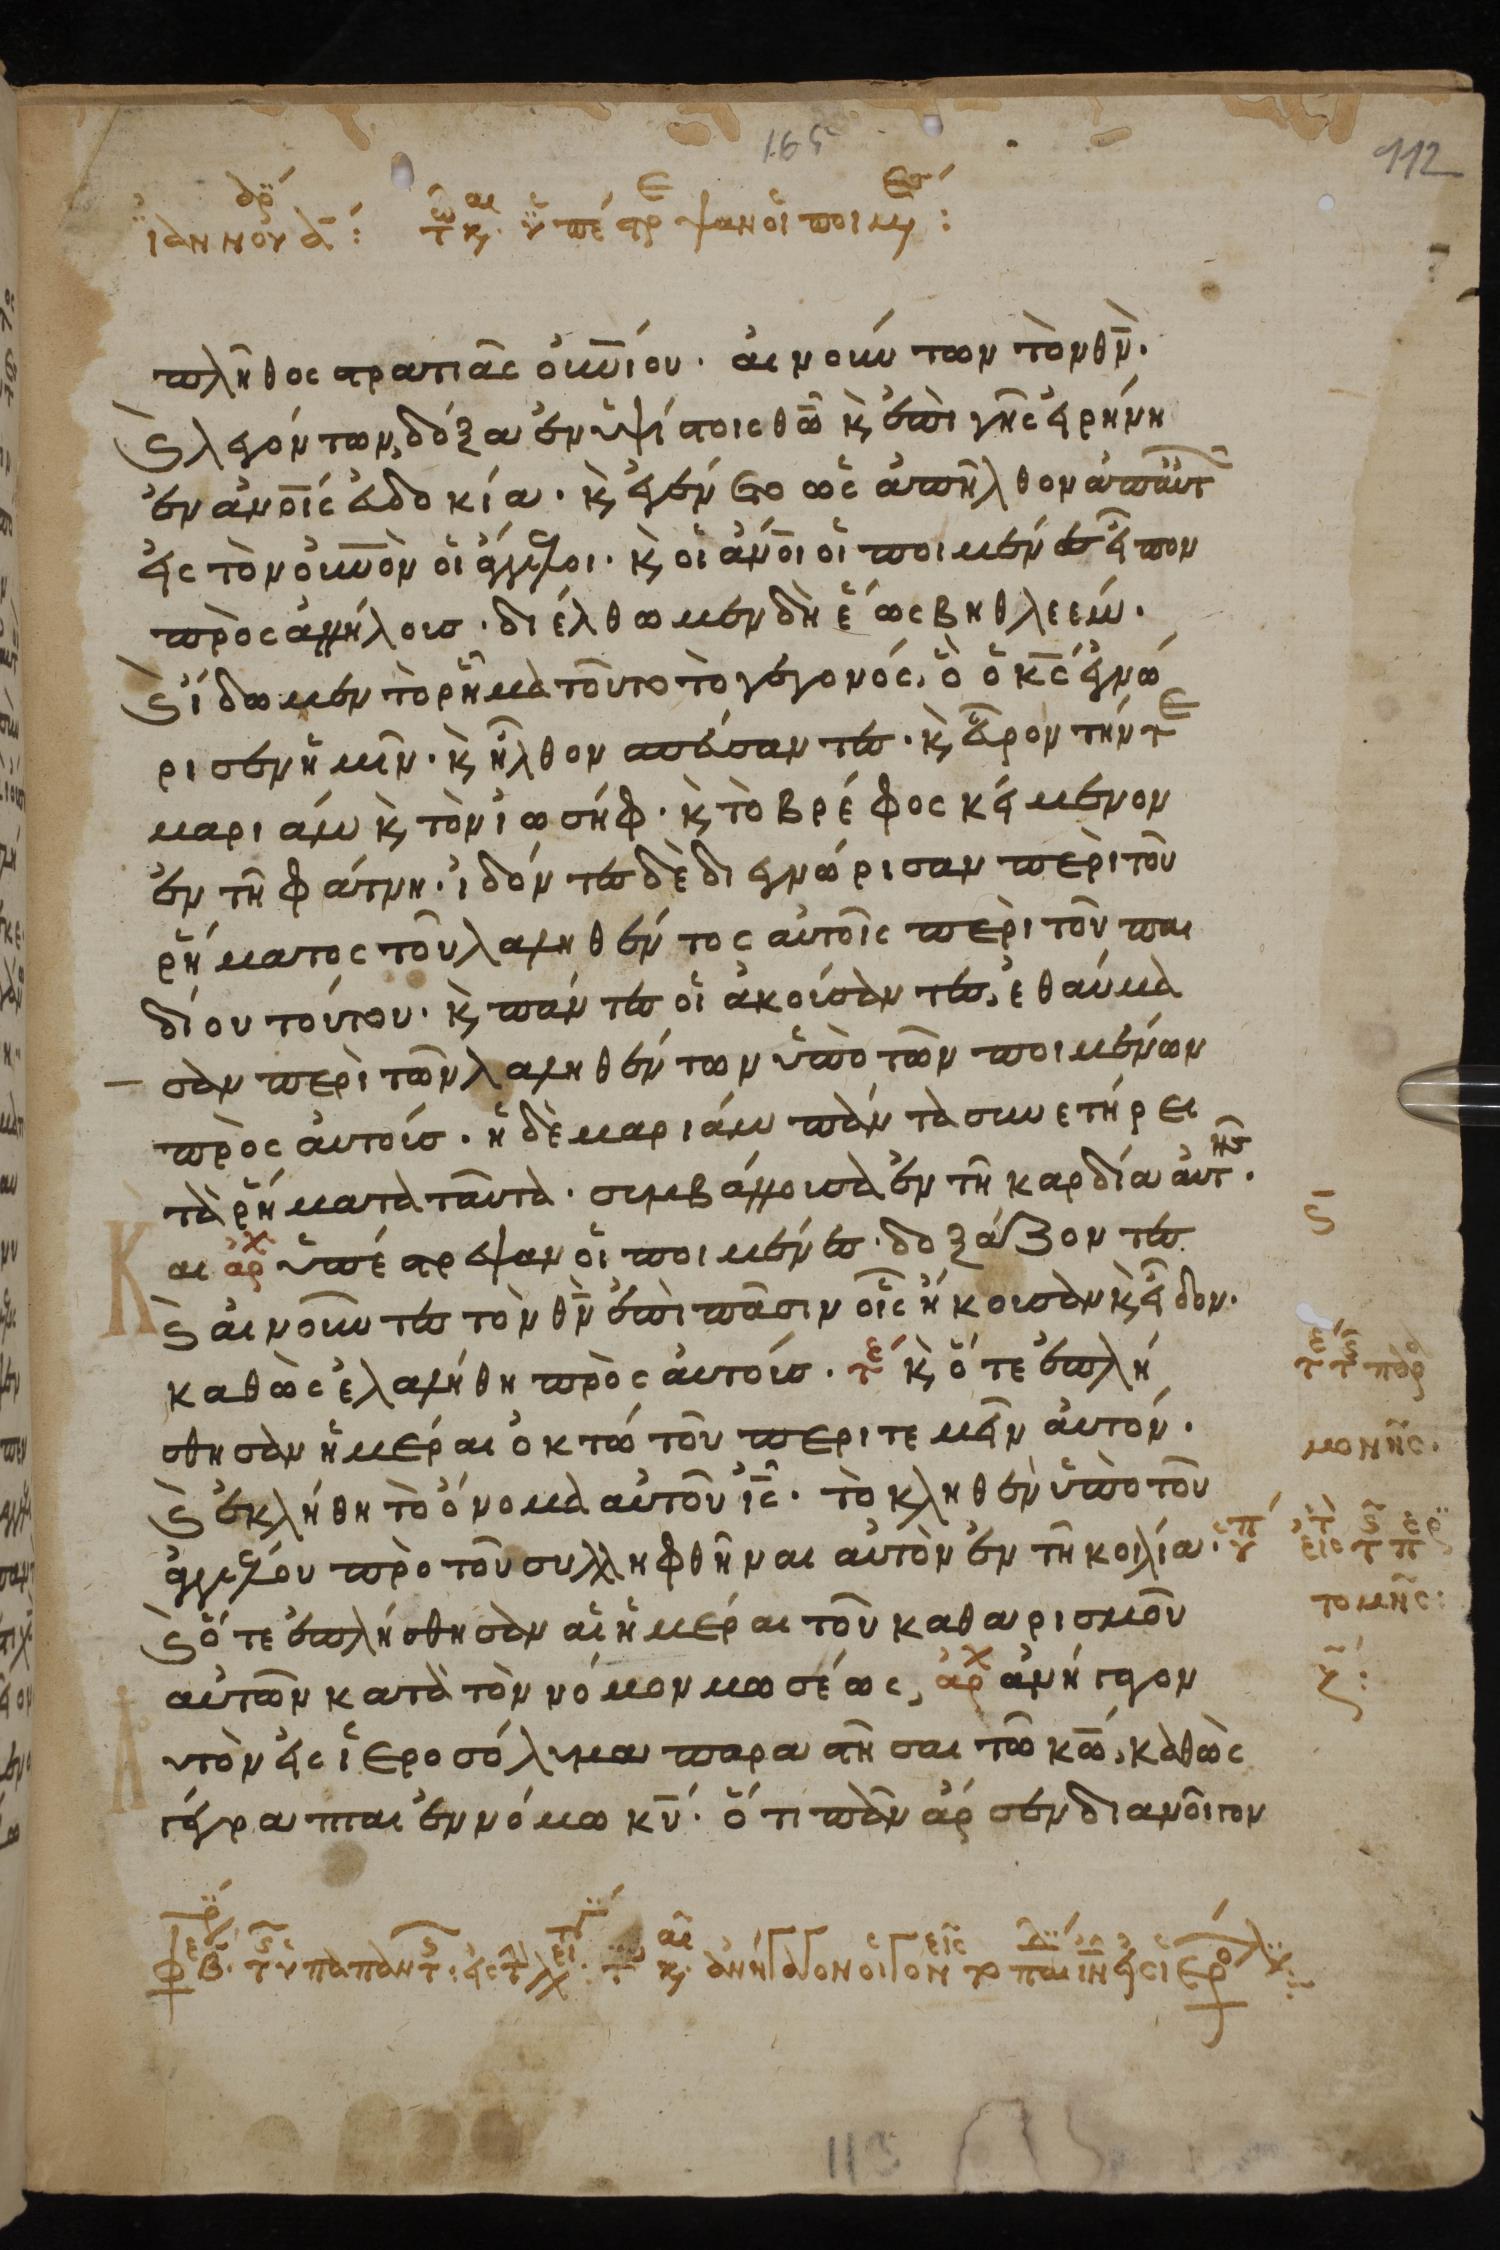 165
112
πλῆθος στρατιᾶς οὐνίου· αἰνούντων τὸν θν̅·
καὶ λεγόντων, δόξα ἐν ὑψίστοις θω̅ καὶ ἐπὶ γῆς εἰρήνη
ἐν ἀνοις εὐδοκία· καὶ ἐγένετο ὡς ἀπῆλθον ἀπ' αὐτῶν
εἰς τὸν οὐνὸν οἱ ἄγγελοι· καὶ οἱ ἄνοι οἱ ποιμένες εἶπον
πρὸς ἀλλήλους· διέλθωμεν δὴ ἕως βηθλεεμ·
καὶ ἴδωμεν τὸ ρῆμα τοῦτο τὸ γεγονός, ὃ ὁ κς ἐγνώ
ρισεν ἡμῖν· καὶ ἦλθον σπεύσαντες· καὶ εὗρον τήν τε
μαριάμ καὶ τὸν ἰωσήφ· καὶ τὸ βρέφος κείμενον
ἐν τῇ φάτνη· ἰδόντες δὲ διεγνώρισαν περὶ τοῦ
ρήματος τοῦ λαληθέντος αὐτοῖς περὶ τοῦ παι
δίου τούτου· καὶ πάντες οἱ ἀκούσαντες, ἐθαύμα
σαν περὶ τῶν λαληθέντων ὑπὸ τῶν ποιμένων
πρὸς αὐτούς· ἡ δὲ μαριάμ πάντα συνετήρει
τὰ ρήματα ταῦτα· συμβάλλουσα ἐν τῇ καρδία αὐτῆς·
Και ἀρχ ὑπέστρεψαν οἱ ποιμένες· δοξάζοντες
καὶ αἰνοῦντες τὸν θν̅ ἐπὶ πᾶσιν οἷς ἤκουσαν καὶ εἶδον·
καθὼς ἐλαλήθη πρὸς αὐτούς· τέ καὶ ὅτε ἐπλή
σθησαν ἡμέραι ὀκτώ τοῦ περιτεμεῖν αὐτόν·
καὶ ἐκλήθη τὸ ὄνομα αὐτοῦ ις· τὸ κληθὲν ὑπὸ τοῦ
ἀγγέλου πρὸ τοῦ συλληφθῆναι αὐτὸν ἐν τῇ κοιλία·
καὶ ὅτε ἐπλήσθησαν αἱ ἡμέραι τοῦ καθαρισμοῦ
αὐτῶν κατὰ τὸν νόμον μωσέως, ἀρχ ἀνήγαγον
αυτὸν εἰς ἱεροσόλυμα παραστῆσαι τῶ κω̅, καθὼς
γέγραπται ἐν νόμω κυ̅· ὅτι πᾶν ἄρσεν διανοῖγον
115